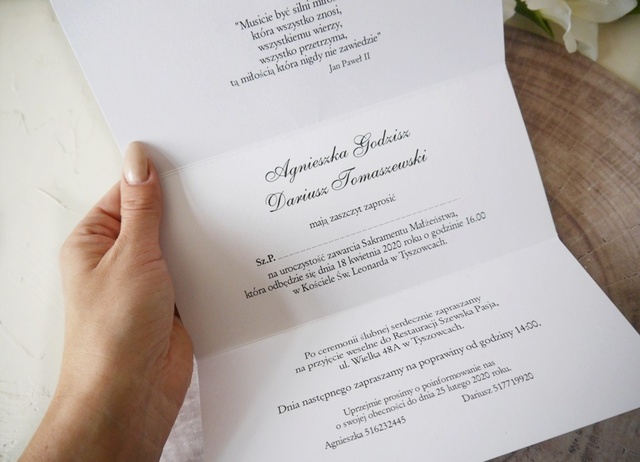 "Musicie być silni miło
która wszystko znosi,
wszystkiemu wierzy,
wszystko przetrzyma,
tą miłością która nigdy nie zawiedzie"
Jan Paweł II
Agnieszka Godzisz
Dariusz Tomaszewski
mają zaszczyt zaprosić
Sz.P.
na uroczystość zawarcia Sakramentu Małżeństwa,
która odbędzie się dnia 18 kwietnia 2020 roku o godzinie 16.00
w Kościele Św. Leonarda w Tyszowcach.
Po ceremonii ślubnej serdecznie zapraszamy
na przyjęcie weselne do Restauracji Szewska Pasja,
ul. Wielka 48A w Tyszowcach.
Dnia następnego zapraszamy na poprawiny od godziny 14:00.
Uprzejmie prosimy o poinformowanie nas
o swojej obecności do dnia 25 lutego 2020 roku.
Agnieszka 516232445 Dariusz 517719920